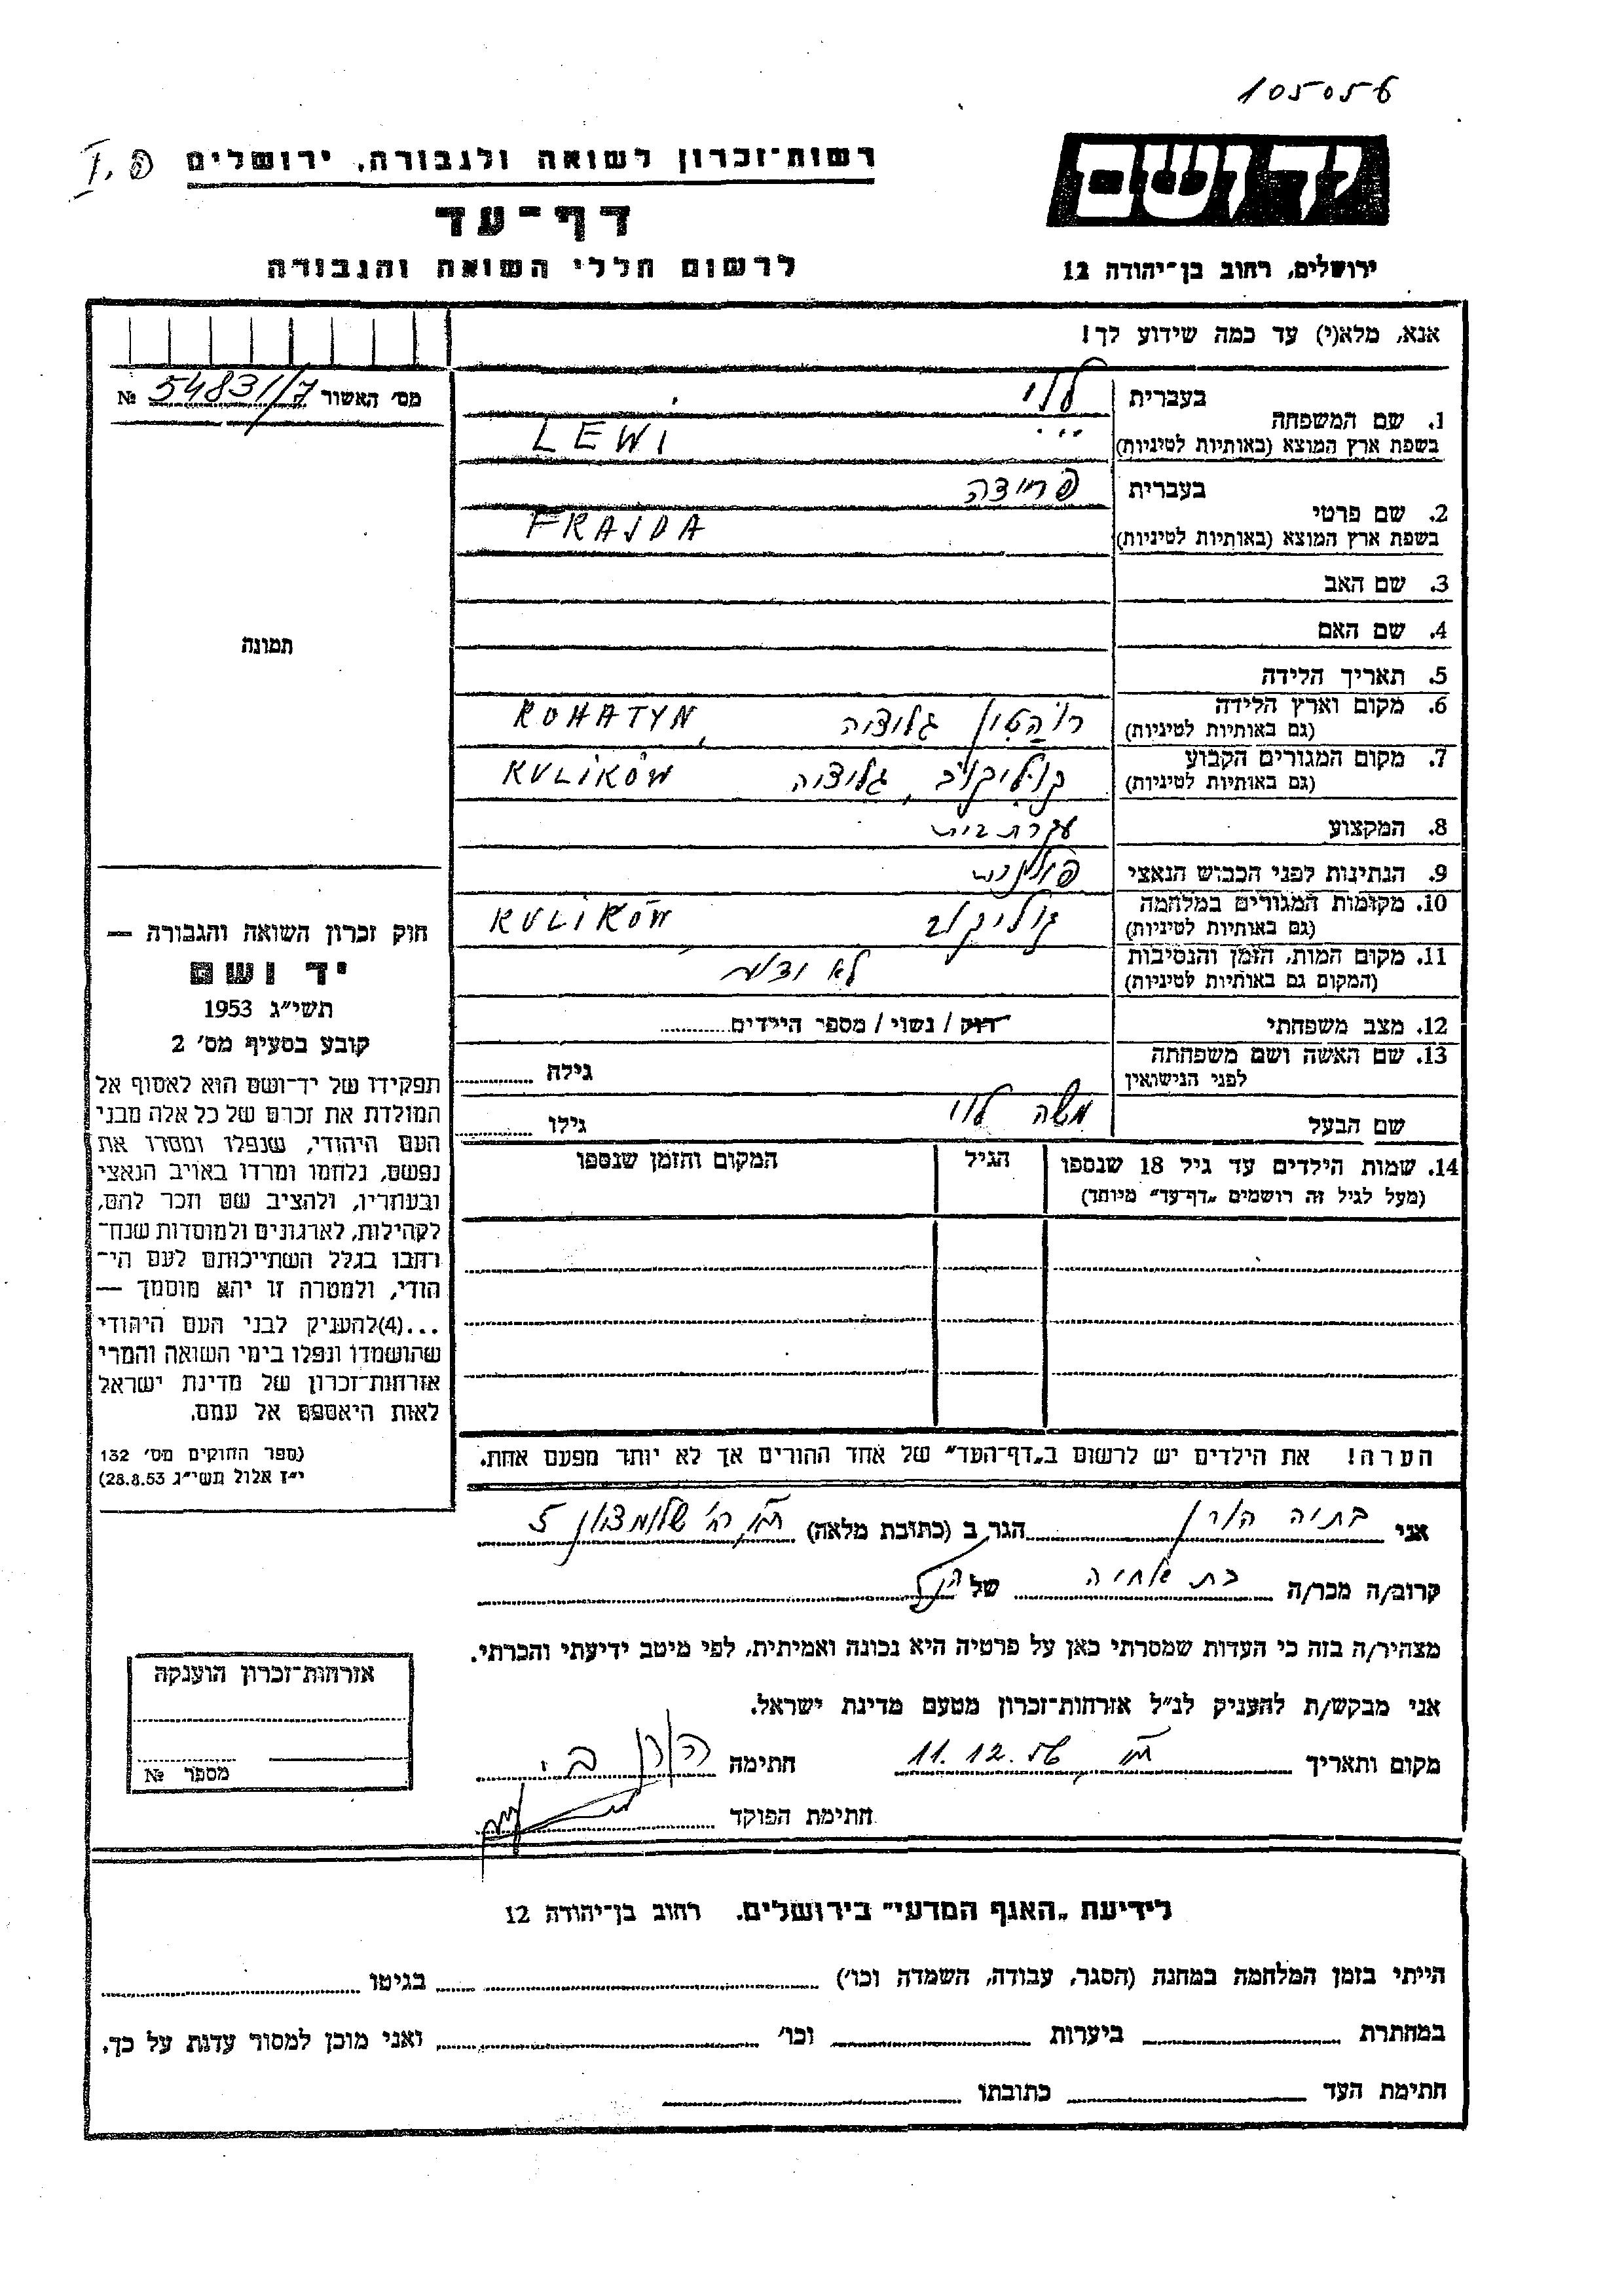 105056
רשות־זכרון לשואה ולגבורה, ירושלים
דף־עד
לרשום חללי השואה והגבורה
יד ושם
ירושלים, רחוב בן־יהודה 12
אנא, מלא(י) עד כמה שידוע לך!
מס׳ האשור 54831/7 №
1. שם המשפחה
בעברית לוי
בשפת ארץ המוצא (באותיות לטיניות) LEWI
2. שם פרטי
בעברית פריידה
בשפת ארץ המוצא (באותיות לטיניות) FRAJDA
3. שם האב
4. שם האם
5. תאריך הלידה
6. מקום וארץ הלידה רוהטין גליציה ROHATYN,
(גם באותיות לטיניות)
7. מקום המגורים הקבוע קוליקוב, גליציה KULIKÓW
(גם באותיות לטיניות)
8. המקצוע עקרת בית
9. הנתינות לפני הכבוש הנאצי פולנית
10. מקומות המגורים במלחמה קוליקוב KULIKÓW
(גם באותיות לטיניות)
11. מקום המות, הזמן והנסיבות לא ידוע
(המקום גם באותיות לטיניות)
12. מצב משפחתי רווק / נשוי / מספר הילדים
13. שם האשה ושם משפחתה גילה
לפני הנישואין
שם הבעל משה לוי גילו
14. שמות הילדים עד גיל 18 שנספו הגיל המקום והזמן שנספו
(מעל לגיל זה רושמים „דף־עד" מיוחד)
הערה! את הילדים יש לרשום ב„דף־העד" של אחד ההורים אך לא יותר מפעם אחת.
תמונה
חוק זכרון השואה והגבורה —
יד ושם
תשי״ג 1953
קובע בסעיף מס׳ 2
תפקידו של יד־ושם הוא לאסוף אל
המולדת את זכרם של כל אלה מבני
העם היהודי, שנפלו ומסרו את
נפשם, נלחמו ומרדו באויב הנאצי
ובעוזריו, ולהציב שם וזכר להם,
לקהילות, לארגונים ולמוסדות שנח־
רבו בגלל השתייכותם לעם הי־
הודי, ולמטרה זו יהא מוסמך —
...(4)להעניק לבני העם היהודי
שהושמדו ונפלו בימי השואה והמרי
אזרחות־זכרון של מדינת ישראל
לאות היאספם אל עמם.
(ספר החוקים מס׳ 132
י״ז אלול תשי״ג 28.8.53)
אני בתיה הורן הגר ב (כתובת מלאה) ת״א, רח׳ שלומציון 5
קרוב/ה מכר/ה בת אחיה של הנ״ל
מצהיר/ה בזה כי העדות שמסרתי כאן על פרטיה היא נכונה ואמיתית, לפי מיטב ידיעתי והכרתי.
אני מבקש/ת להעניק לנ״ל אזרחות־זכרון מטעם מדינת ישראל.
מקום ותאריך ת״א 11.12.56 חתימה הורן ב׳
חתימת הפוקד
אזרחות־זכרון הוענקה
מספר №
לידיעת „האגף המדעי" בירושלים, רחוב בן־יהודה 12
הייתי בזמן המלחמה במחנה (הסגר, עבודה, השמדה וכו׳) בגיטו
במחתרת ביערות וכו׳ ואני מוכן למסור עדות על כך.
חתימת העד כתובתו